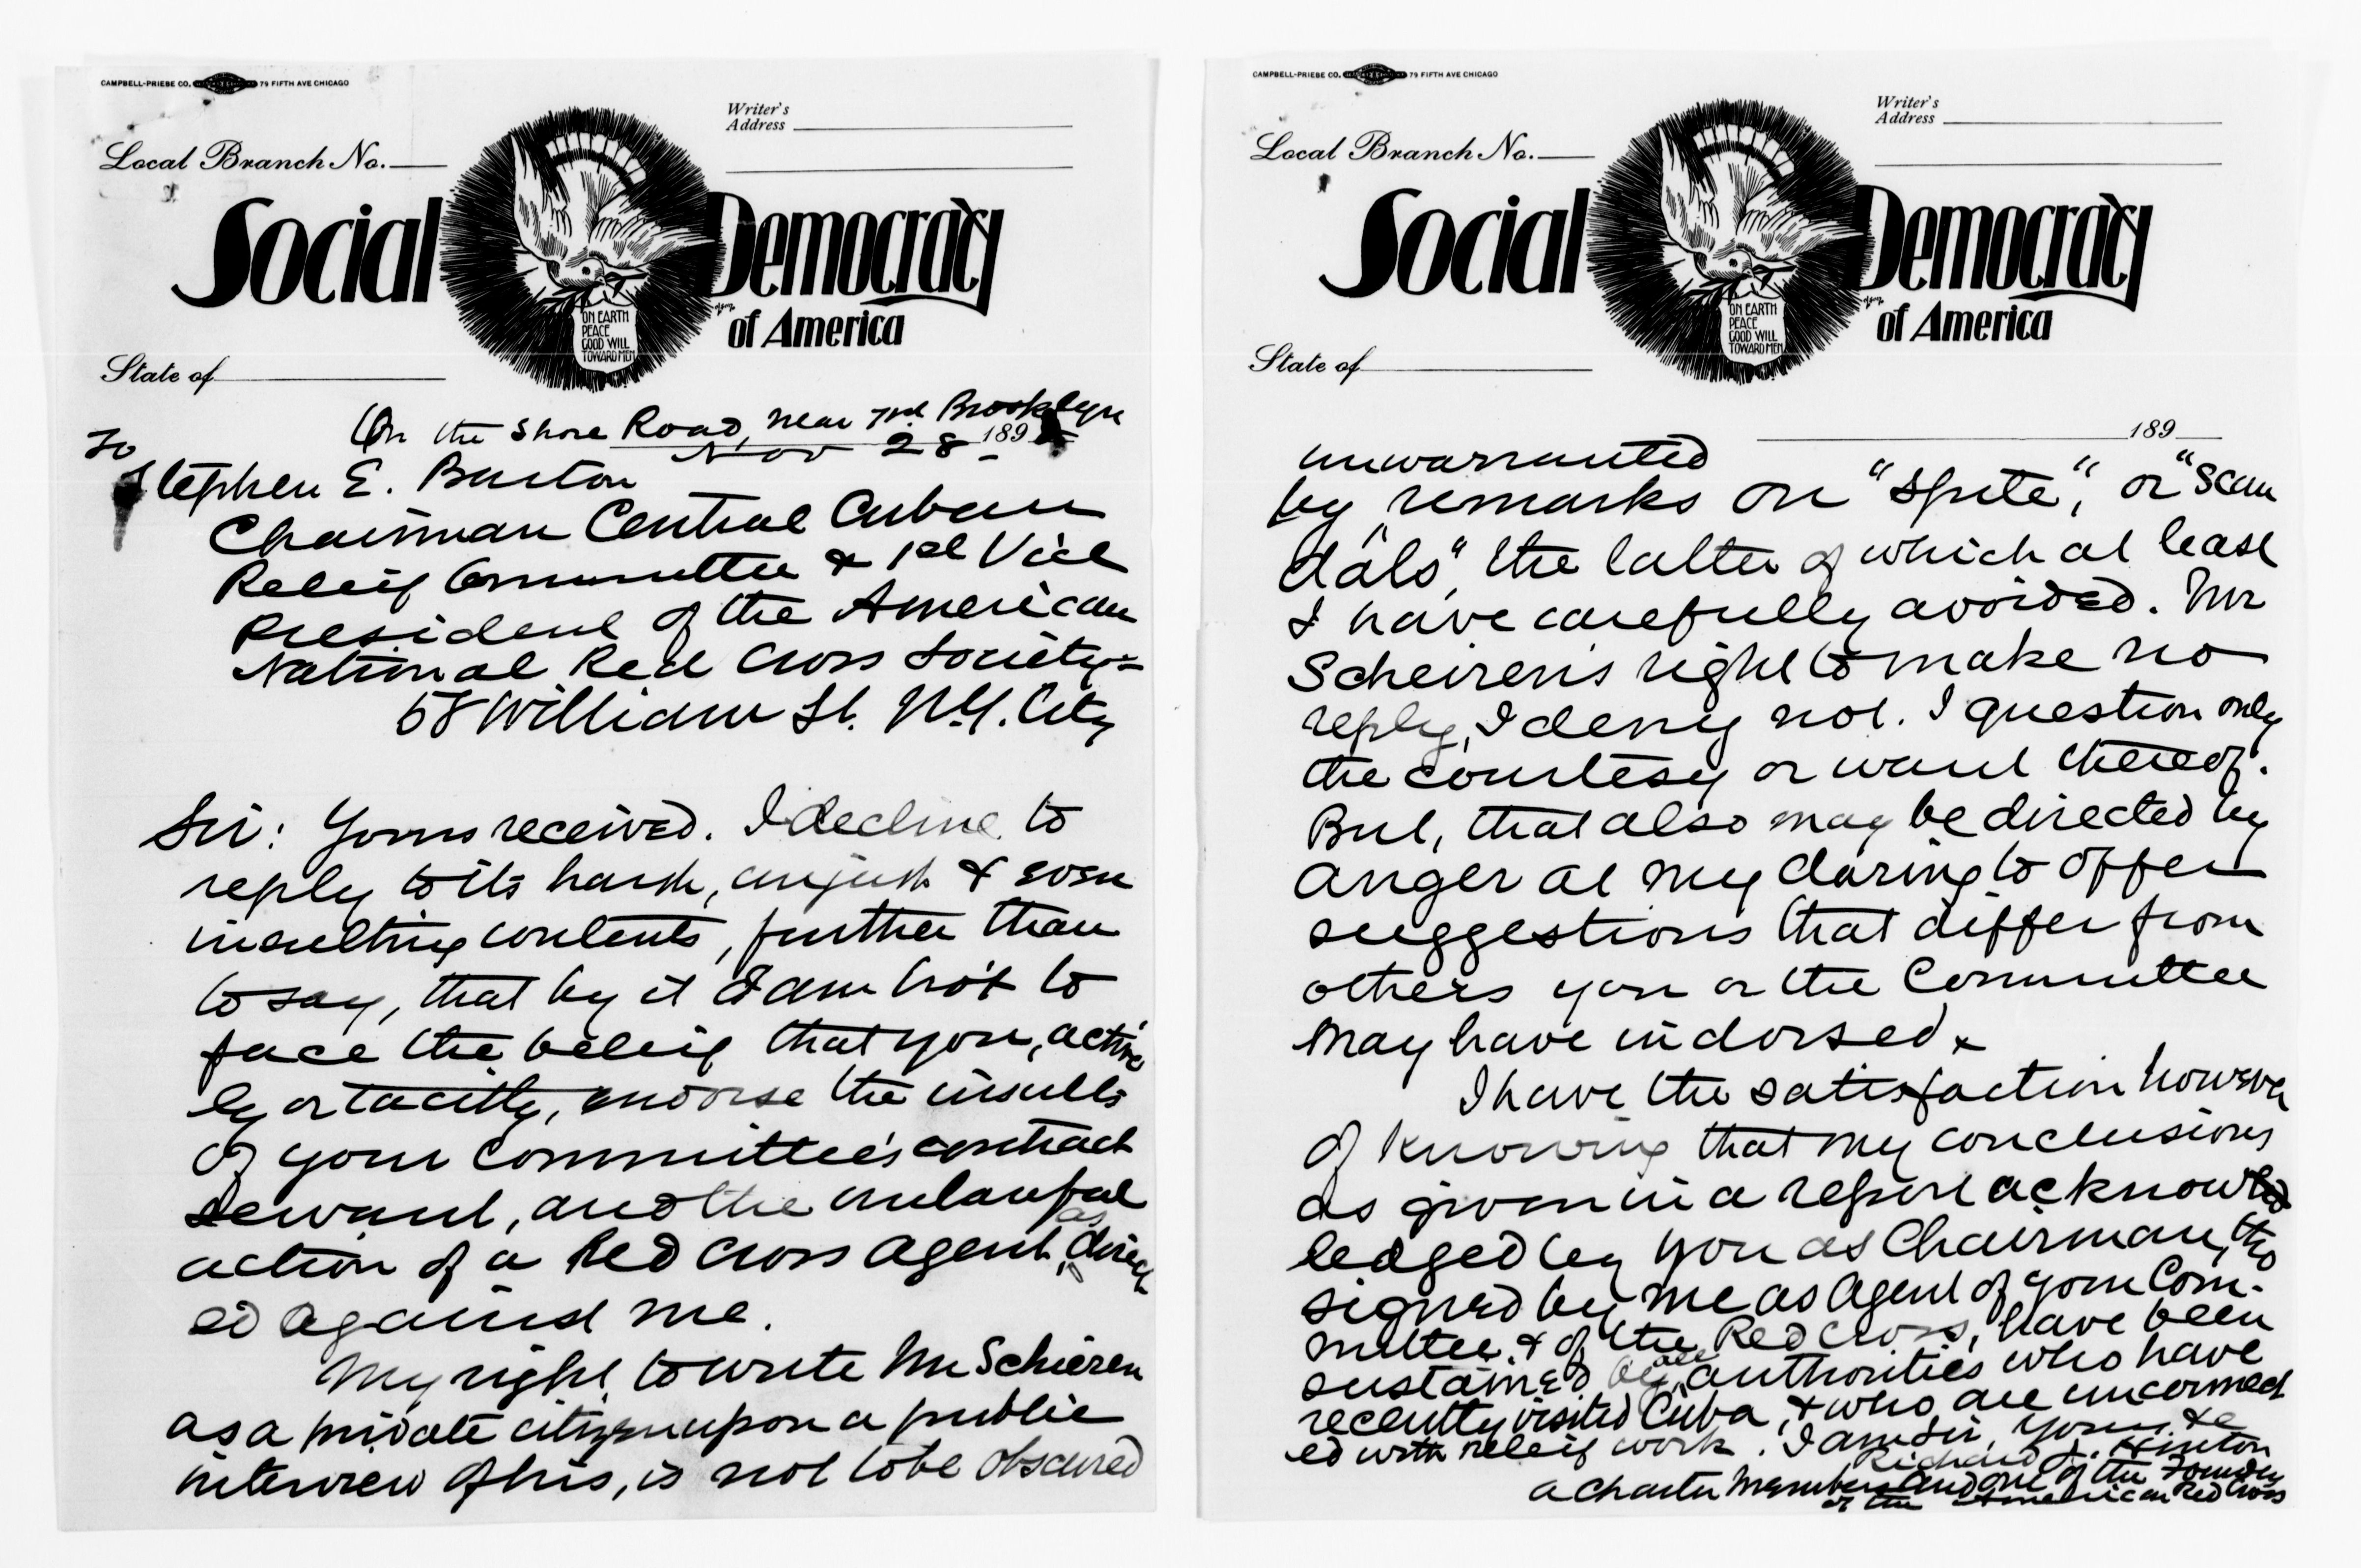 CAMPBELL-PRIEBE CO. 79 FIFTH AVE CHICAGO
Writer's
Address
Local Branch No.
Social Democracy
of America
ON EARTH
PEACE
GOOD WILL
TOWARD MEN
State of
On the Shore Road, near 73rd. Brooklyn
Nov 28 - 189
To
Stephen E. Barton
Chairman Central Cuban
Releif Committee & 1st Vice
President of the American
National Red Cross Society-
58 William St. N.Y. City
Sir: Yours received. I decline to
reply to its harsh, unjust & even
insulting contents, further than
to say, that by it I am bro't to
face the beleif that you, active
ly or tacitly, endorse the insults
of your Committee's contract
servant, and the unlawful
action of a Red Cross agent, as direct
ed against me.
My right to write Mr Schieren
as a private citizen upon a public
interview of his, is not to be obscured
CAMPBELL-PRIEBE CO. 79 FIFTH AVE CHICAGO
Writer's
Address
Local Branch No.
Social Democracy
of America
ON EARTH
PEACE
GOOD WILL
TOWARD MEN
State of
189
unwarranted
by remarks on "spite", or "scan
dals", the latter of which at least
I have carefully avoided. Mr
Scheiren's right to make no
reply, I deny not. I question only
the courtesy or want thereof.
But, that also may be directed by
anger at my daring to offer
suggestions that differ from
others you or the Committee
may have indorsed.
I have the satisfaction however
of knowing that my conclusions
as given in a report acknow
ledged by you as Chairman, tho
signed by me as agent of your Com-
mittee & of the Red Cross, have been
sustained by all authorities who have
recently visited Cuba, & who are unconnect
ed with releif work. I am Sir, yours &c
Richard J. Hinton
a charter member and one of the founders
of the American Red Cross